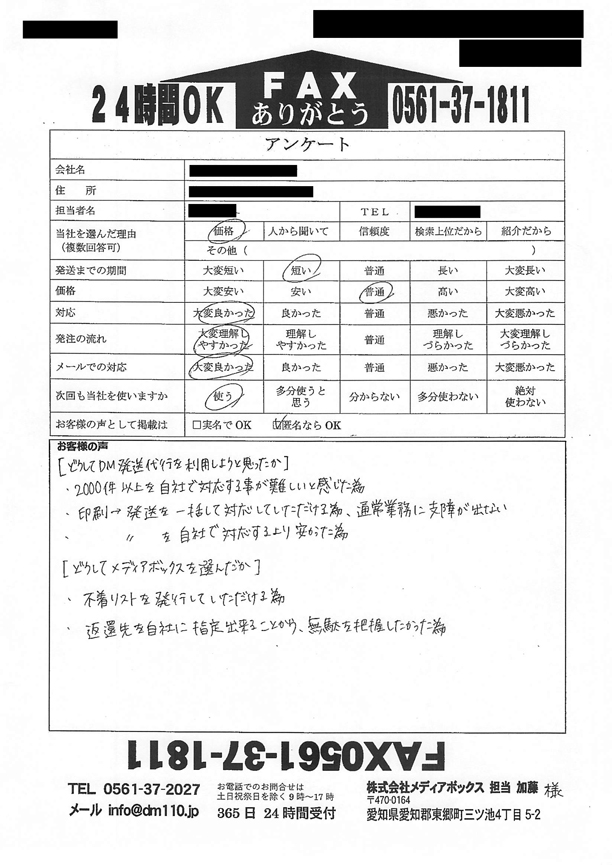 24時間OK
FAX
ありがとう
0561-37-1811
アンケート
会社名
住 所
担当者名 TEL
当社を選んだ理由
(複数回答可)
価格 人から聞いて 信頼度 検索上位だから 紹介だから
その他 ( )
発送までの期間 大変短い 短い 普通 長い 大変長い
価格 大変安い 安い 普通 高い 大変高い
対応 大変良かった 良かった 普通 悪かった 大変悪かった
発注の流れ 大変理解しやすかった 理解しやすかった 普通 理解しづらかった 大変理解しづらかった
メールでの対応 大変良かった 良かった 普通 悪かった 大変悪かった
次回も当社を使いますか 使う 多分使うと思う 分からない 多分使わない 絶対使わない
お客様の声として掲載は □実名でOK ☑匿名ならOK
お客様の声
[どうしてDM発送代行を利用しようと思ったか]
・2000件以上を自社で対応する事が難しいと感じた為
・印刷→発送を一括して対応していただける為、通常業務に支障が出ない
・ 〃 を自社で対応するより安かった為
[どうしてメディアボックスを選んだか]
・不着リストを発行してしていただける為
・返還先を自社に指定出来ることから、無駄を把握したかった為
FAX0561-37-1811
TEL 0561-37-2027
メール info@dm110.jp
お電話でのお問合せは
土日祝祭日を除く9時〜17時
365日 24時間受付
株式会社メディアボックス 担当 加藤 様
〒470-0164
愛知県愛知郡東郷町三ツ池4丁目 5-2